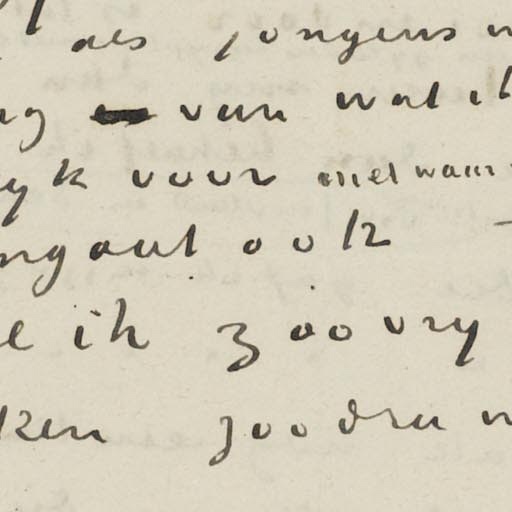 als jongens
van wat ik
yk voor met waar
ngaat ook
e ik zoo vry
ken zoodra